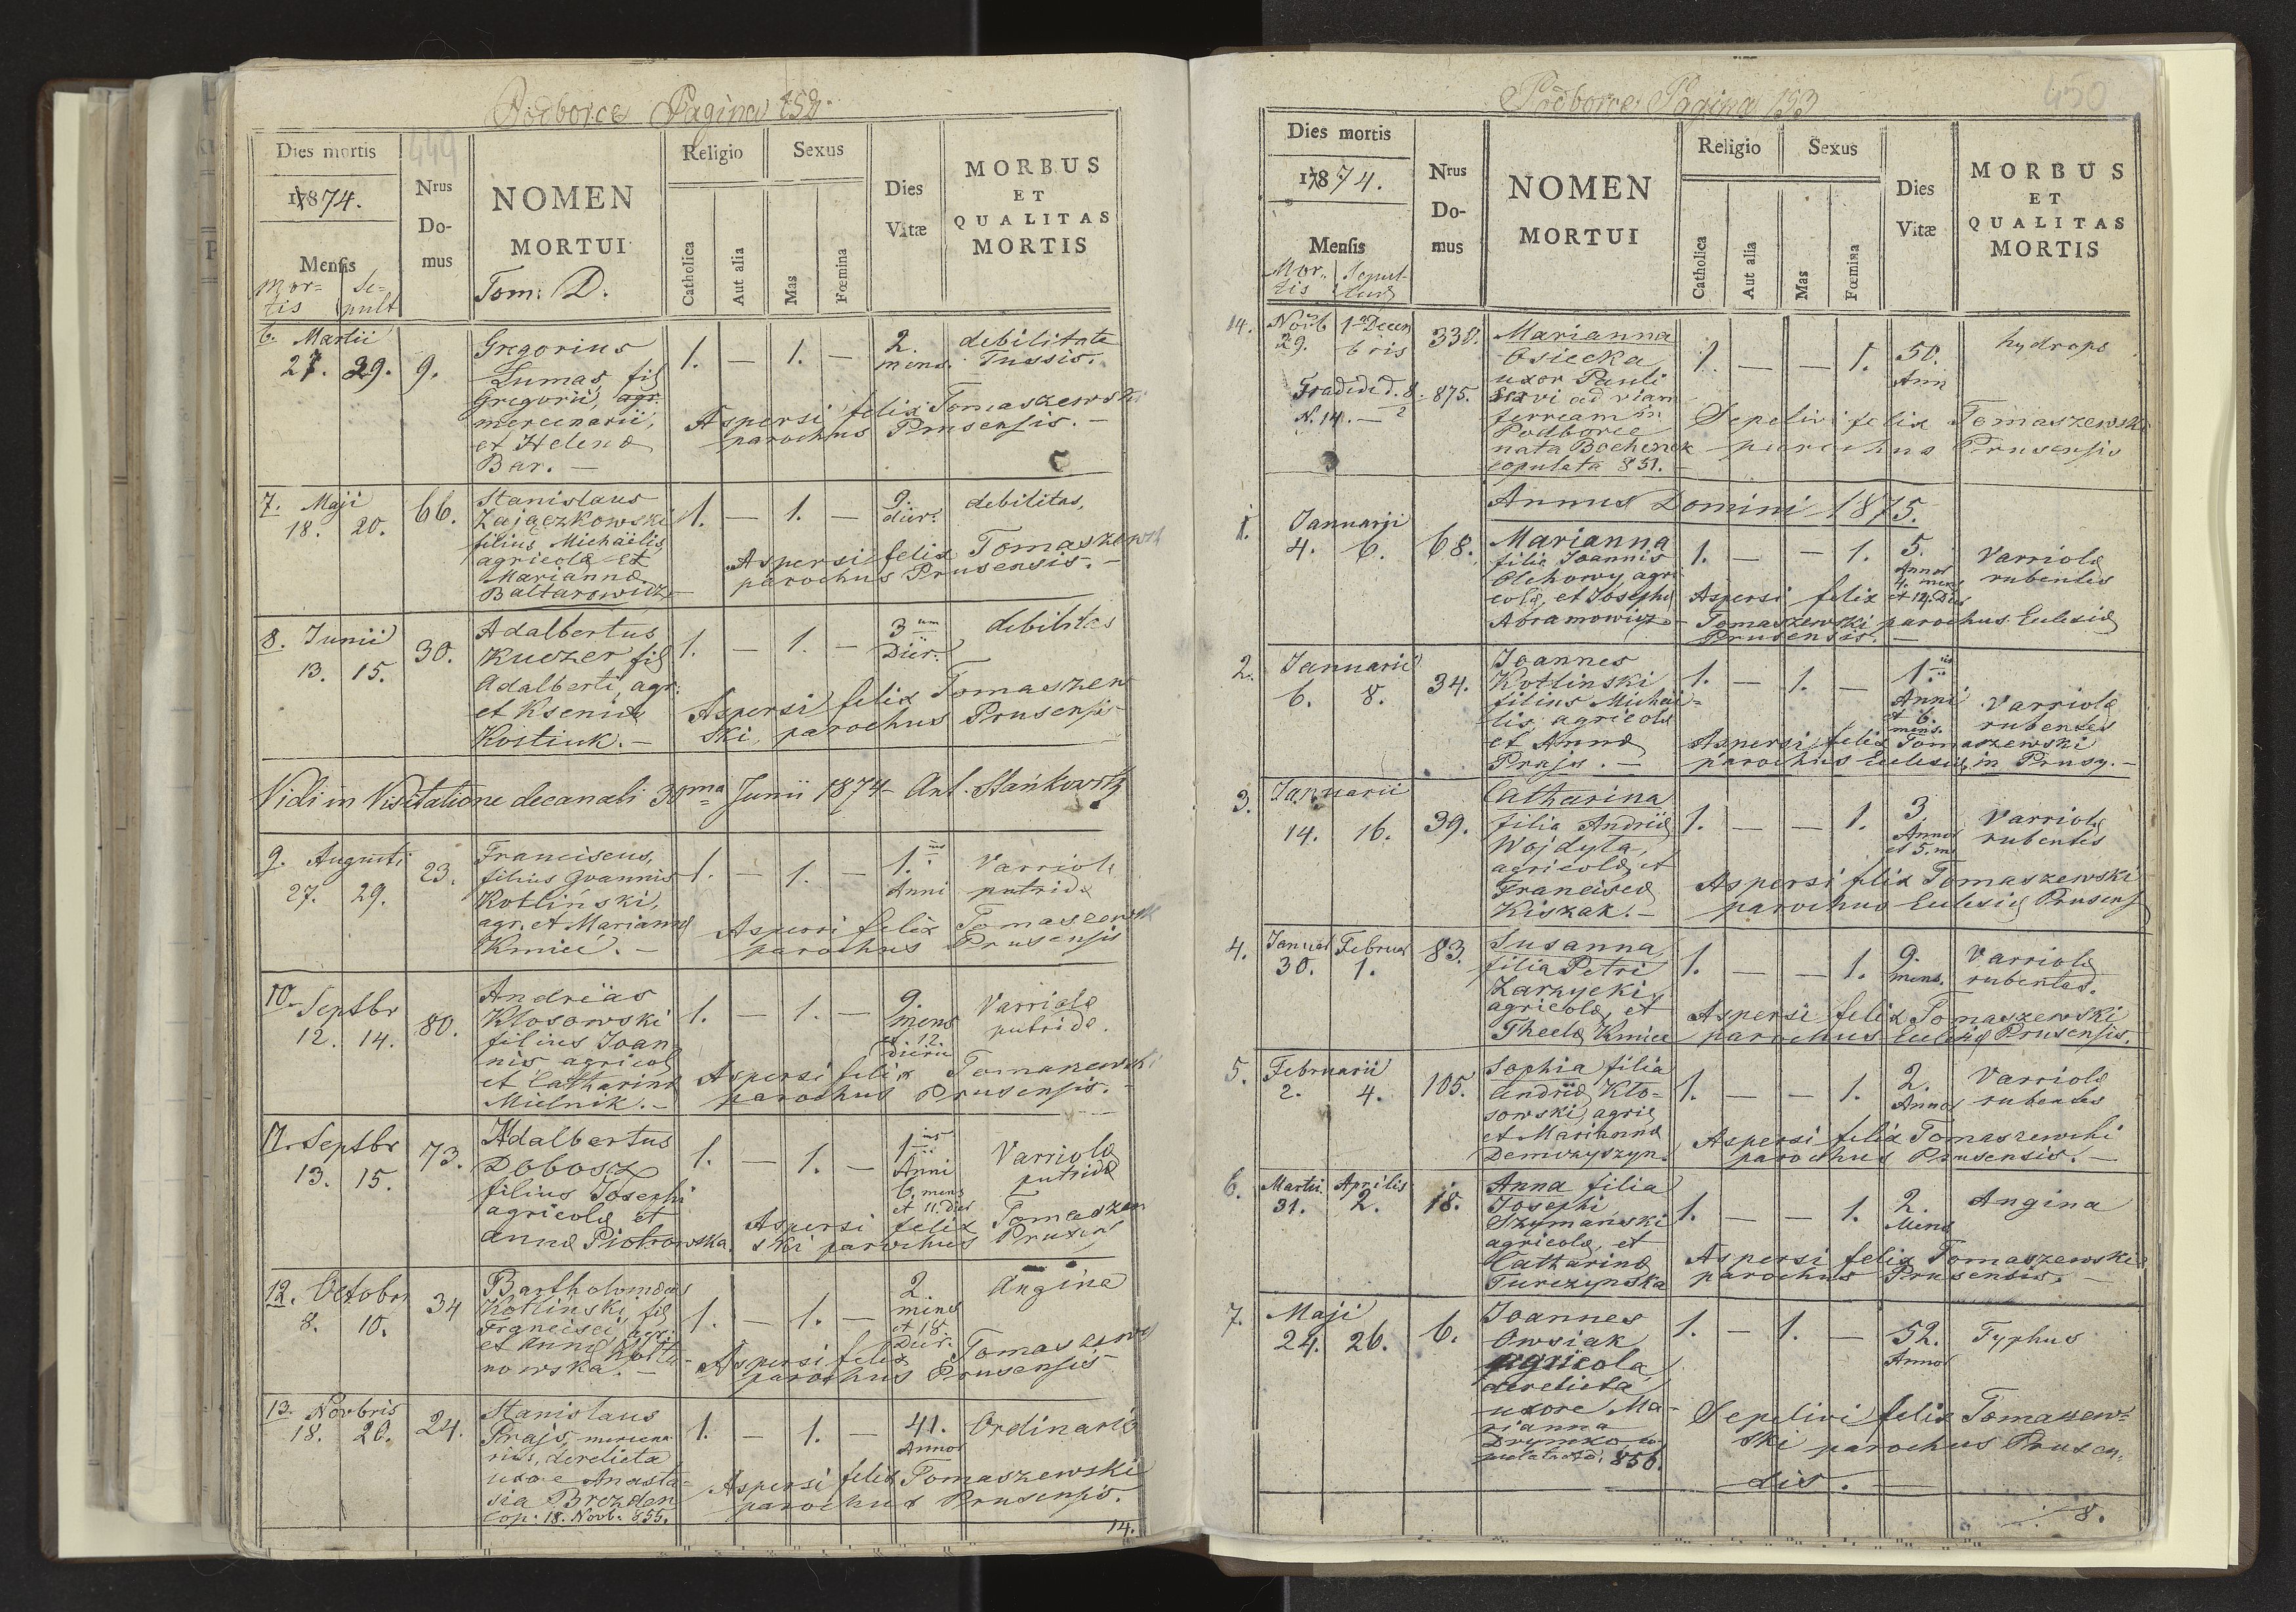 Podborce Pagina 152.
449
Dies mortis
1874.
Mensis
Mor=
tis
Se=
pult
Nrus
Do-
mus
NOMEN
MORTUI
Tom: D.
Religio
Catholica
Aut alia
Sexus
Mas
Fœmina
Dies
Vitæ
MORBUS
ET
QUALITAS
MORTIS
6. Martii
27. 29. 9.
Gregorius
Lumas, fil
Gregorii, agr.
mercenarii,
et Helena
Bar. —
1. — 1. —
2.
mens.
debilitate
Tussis.
Aspersi felix Tomaszewski
parochus Prusensis. —
7. Maji
18. 20. 66.
Stanislaus
Zajączkowski
filius Michaëlis
agricolæ et
Marianna
Baltarowicz
1. — 1. —
9.
dier.
debilitas,
Aspersi felix Tomaszewsk
parochus Prusensis. —
8. Junii
13. 15. 30.
Adalbertus
Kuczer fil
Adalberti, agr.
et Ksenia
Kostiuk. —
1. — 1. —
3 um
Dier.
debilitas
Aspersi felix Tomaszew
ski, parochus Prusensis
Vidi in Visitatione decanali 30ma Junii 1874 Ant. Stańkowski
9. Augusti
27. 29. 23.
Franciscus,
filius Joannis
Kotliński,
agr. et Marianna
Kmieć. —
1. — 1. —
1.
Anni
Varriola
putrida
Aspersi felix Tomaszewsk
parochus Prusensis
10. Septbr
12. 14. 80.
Andreas
Klosowski
filius Joan
nis agricol
et Catharina
Mielnik. —
1. — 1. —
9.
mens
et 12
dieru
Varriola
putrida.
Aspersi felix Tomaszewski
parochus Prusensis. —
11. Septbr
13. 15. 73.
Adalbertus
Dobosz
filius Josephi
agricolæ et
Anna Piotrowska.
1. — 1. —
1
Anni
6 mens
et 11. dies
Varriola
putrida
Aspersi felix Tomaszew
ski parochus Prusens
12. Octobr
8. 10. 34
Bartholomæus
Kotliński, fil
Francisci, agr.
et Anna Kotta-
nowska. —
1. — 1. —
2.
mens
et 18
Dier.
Angina
Aspersi felix Tomaszew
parochus Prusensis
13. Novbris
18. 20. 24.
Stanislaus
Prajs, mercena
rius, derelicta
uxore Anasta-
sia Brezden
Cop. 18. Novb. 855.
1. — 1. —
41.
Annos
Ordinaria
Aspersi felix Tomaszewski
parochus Prusensis.
14.
Podborce Pagina 153
450
Dies mortis
1874.
Mensis
Mor-
tis
Sepul-
turæ
Nrus
Do-
mus
NOMEN
MORTUI
Religio
Catholica
Aut alia
Sexus
Mas
Fœmina
Dies
Vitæ
MORBUS
ET
QUALITAS
MORTIS
14. Novb 1a Decem
29. bris 338.
Tradidi d. 8. 875.
N. 14. — 2
Marianna
Osiecka
uxor Pauli
servi ad viam
ferream in
Podborce
nata Bochenek
copulata 851.
1. — — 1.
50.
Ann
hydrops
Sepelivi felix Tomaszewski
parochus Prusensis
Annus Domini 1875.
1. Januarii
4. 6. 68.
Marianna
filia Joannis
Olchowy, agri
colæ, et Josepha
Abramowicz
1. — — 1.
5.
Annos
4. mens
et 14. Dies
Varriola
rubentes
Aspersi felix
Tomaszewski parochus Eclesiæ
Prusensis. —
2. Januarii
6. 8. 34.
Joannes
Kotlinski
filius Michaë=
lis agricolæ
et Anna
Prajs. —
1. — 1. —
1.
Anni
et 6.
mens.
Varriola
rubentes
Aspersi felix Tomaszewski
parochus Eclesiæ in Prusy. —
3. Januarii
14. 16. 39.
Catharina
filia Andriæ
Wojdyla,
agricolæ, et
Francisca
Kiszak. —
1. — — 1.
3
Annos
et 5. m
Varriola
rubentes
Aspersi felix Tomaszewski
parochus Eclesiæ Prusens
4. Januar Februar
30. 1. 83.
Susanna,
filia Petri
Zarzycki,
agricolæ, et
Thecla Kmieć
1. — — 1.
9.
mens.
Varriola
rubentes.
Aspersi felix Tomaszewski
parochus Eclesiæ Prusensis.
5. Februarii
2. 4. 105.
Sophia filia
Andriæ Klo=
sowski, agric
et Marianna
Demczyszyn.
1. — — 1.
2.
Annos
Varriola
rubentes
Aspersi felix Tomaszewski
parochus Prusensis. —
6. Martii Aprilis
31. 2. 18.
Anna filia
Josephi
Szymański
agricolæ, et
Catharina
Turczynska
1. — — 1.
2.
Mens
Angina
Aspersi felix Tomaszewski
parochus Prusensis. —
7. Maji
24. 26. 6.
Joannes
Owsiak
agricola,
derelicta
uxore Ma-
rianna
856.
1. — 1. —
52.
Annos
Typhus
Sepelivi felix Tomaszew=
ski parochus Prusen.
sis. —
8.